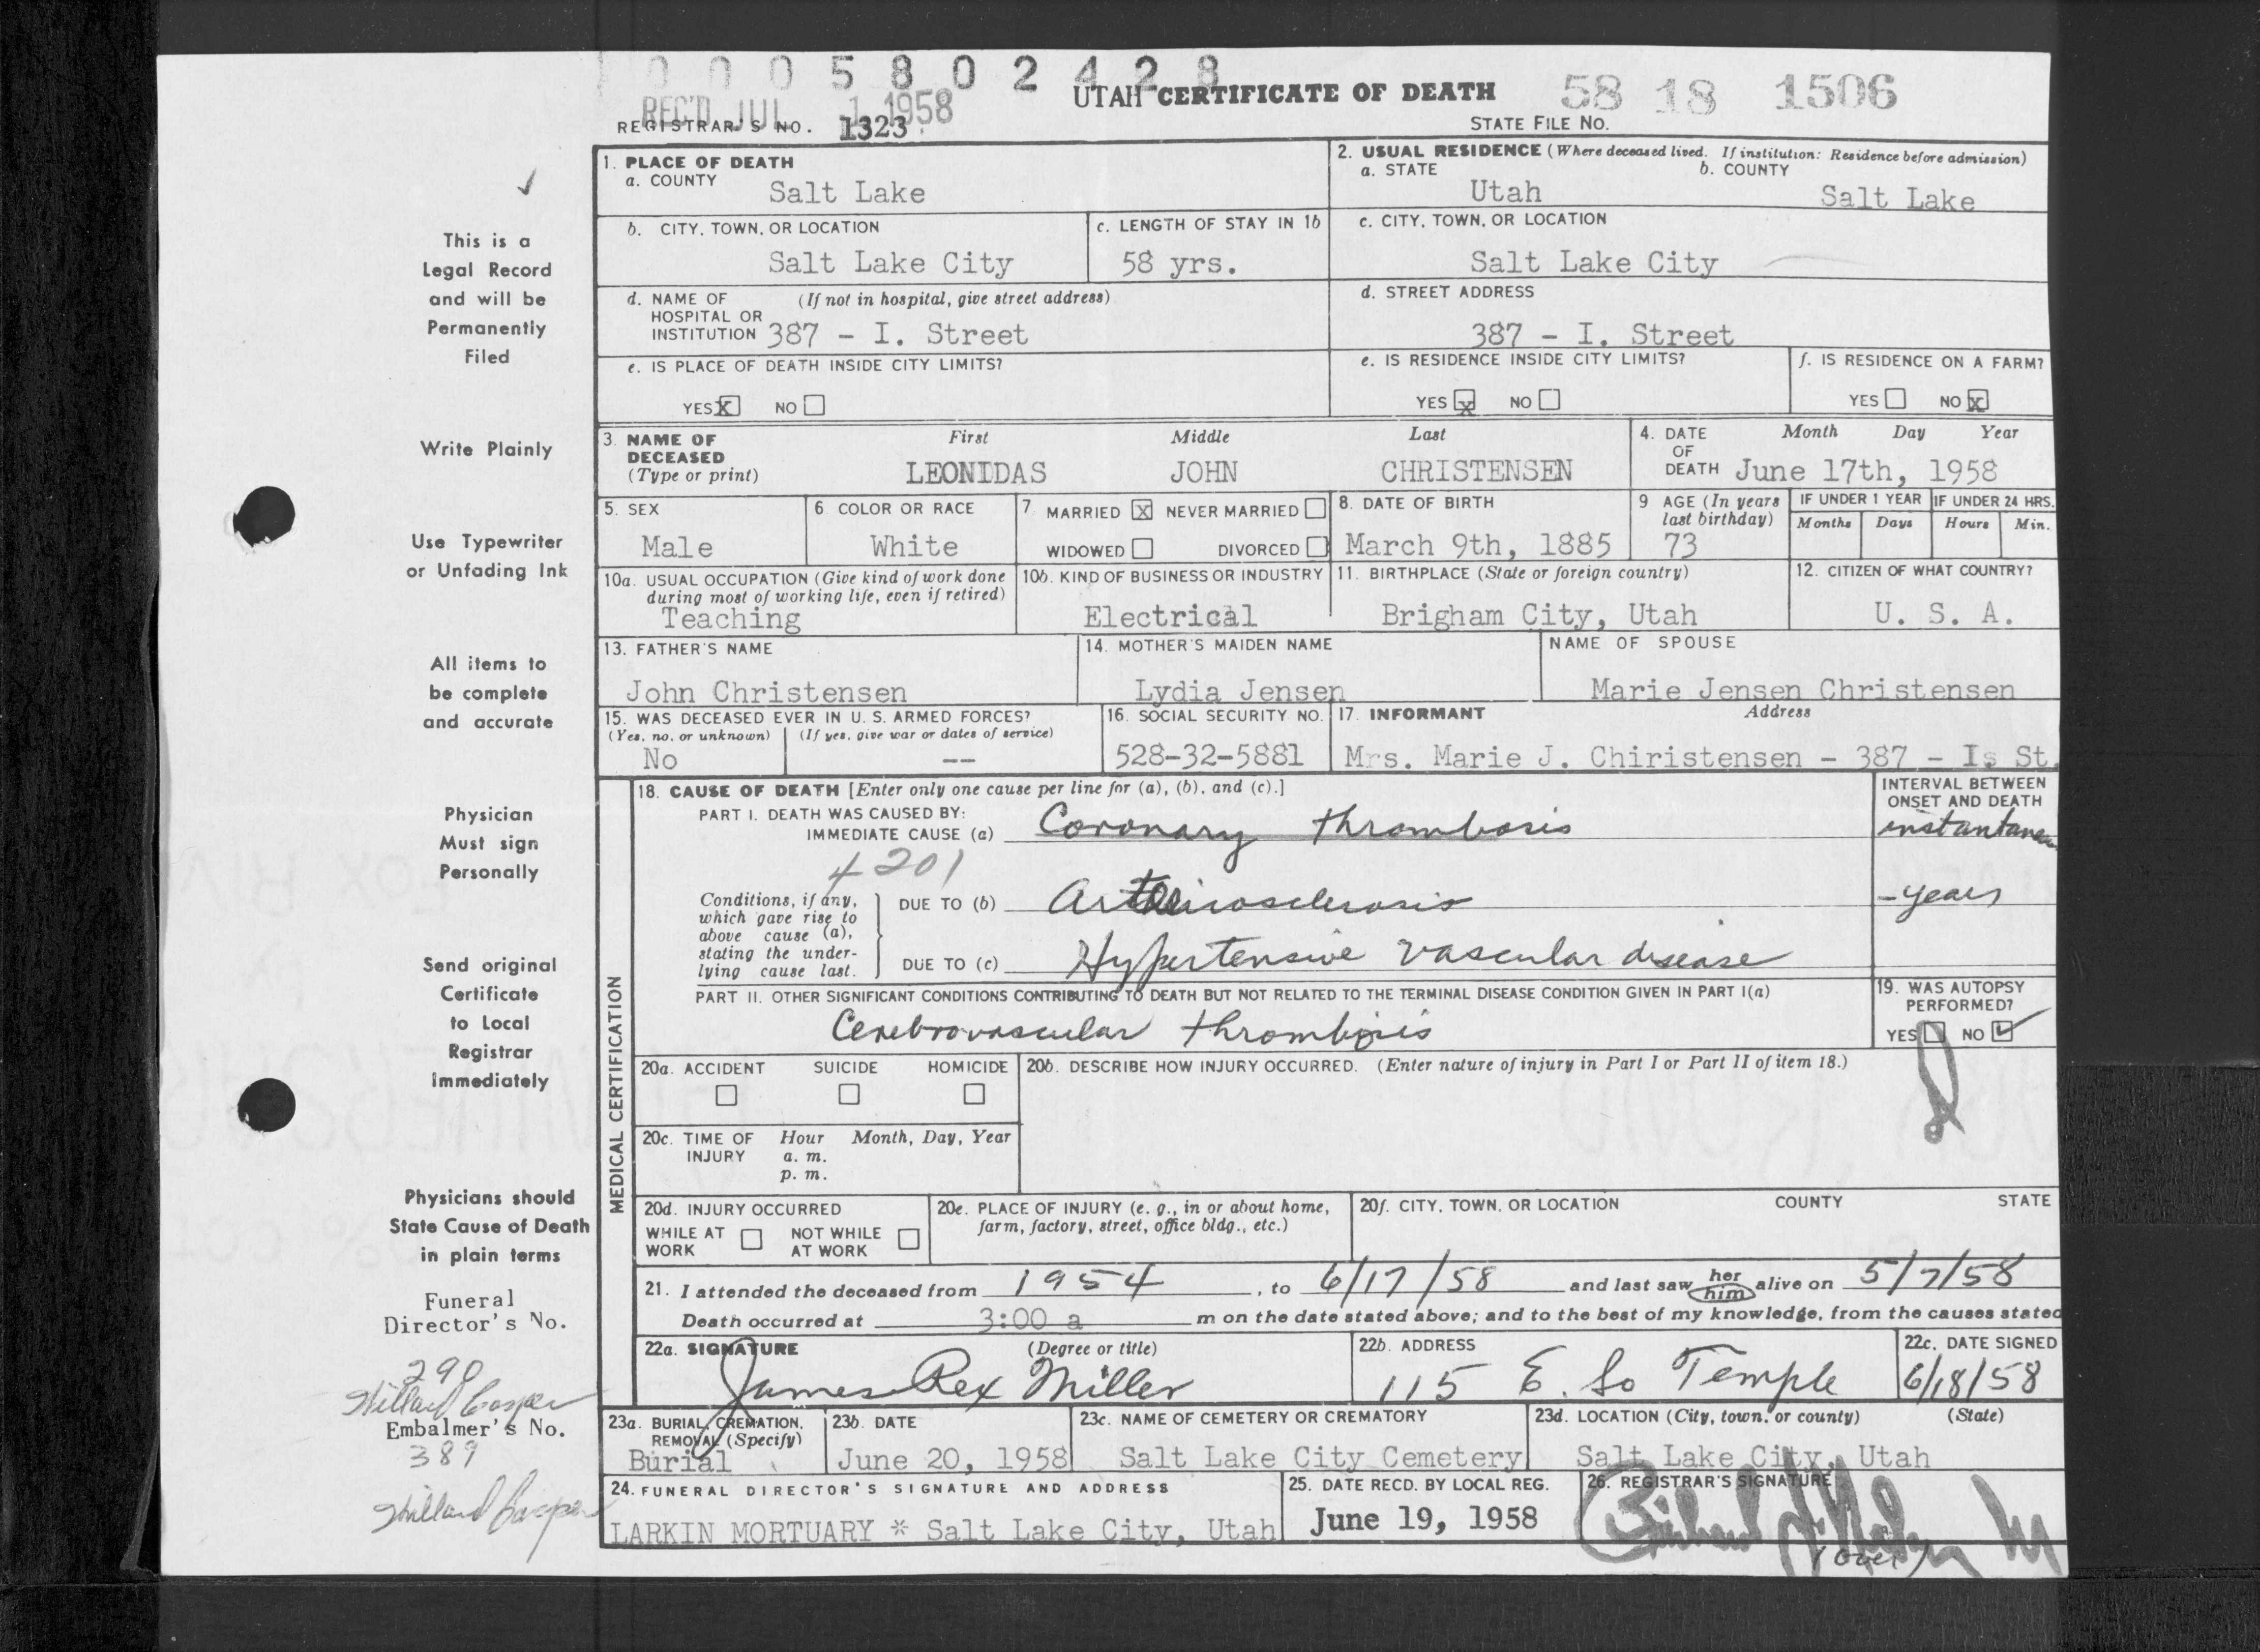 0 0 0 5 8 0 2 4 2 8
REC'D JUL 1 1958
UTAH CERTIFICATE OF DEATH
58 18 1506
REGISTRAR'S NO. 1323
STATE FILE NO.
1. PLACE OF DEATH
a. COUNTY Salt Lake
2. USUAL RESIDENCE (Where deceased lived. If institution: Residence before admission)
a. STATE Utah b. COUNTY Salt Lake
b. CITY, TOWN, OR LOCATION Salt Lake City
c. LENGTH OF STAY IN 1b 58 yrs.
c. CITY, TOWN, OR LOCATION Salt Lake City
d. NAME OF HOSPITAL OR INSTITUTION (If not in hospital, give street address) 387 - I. Street
d. STREET ADDRESS 387 - I. Street
e. IS PLACE OF DEATH INSIDE CITY LIMITS?
YES X NO
e. IS RESIDENCE INSIDE CITY LIMITS?
YES X NO
f. IS RESIDENCE ON A FARM?
YES NO X
3. NAME OF DECEASED (Type or print)
First Middle Last
LEONIDAS JOHN CHRISTENSEN
4. DATE OF DEATH Month Day Year
June 17th, 1958
5. SEX Male
6 COLOR OR RACE White
7. MARRIED X NEVER MARRIED
WIDOWED DIVORCED
8. DATE OF BIRTH March 9th, 1885
9 AGE (In years last birthday) 73
IF UNDER 1 YEAR Months Days
IF UNDER 24 HRS. Hours Min.
10a. USUAL OCCUPATION (Give kind of work done during most of working life, even if retired)
Teaching
10b. KIND OF BUSINESS OR INDUSTRY
Electrical
11. BIRTHPLACE (State or foreign country)
Brigham City, Utah
12. CITIZEN OF WHAT COUNTRY?
U. S. A.
13. FATHER'S NAME
John Christensen
14. MOTHER'S MAIDEN NAME
Lydia Jensen
NAME OF SPOUSE
Marie Jensen Christensen
15. WAS DECEASED EVER IN U. S. ARMED FORCES?
(Yes, no, or unknown) (If yes, give war or dates of service)
No --
16. SOCIAL SECURITY NO.
528-32-5881
17. INFORMANT Address
Mrs. Marie J. Chiristensen - 387 - Is St.
MEDICAL CERTIFICATION
18. CAUSE OF DEATH [Enter only one cause per line for (a), (b), and (c).]
INTERVAL BETWEEN ONSET AND DEATH
PART I. DEATH WAS CAUSED BY:
IMMEDIATE CAUSE (a) Coronary thrombosis
4201
Conditions, if any, which gave rise to above cause (a), stating the underlying cause last.
DUE TO (b) Arteriosclerosis - years
DUE TO (c) Hypertensive vascular disease
PART II. OTHER SIGNIFICANT CONDITIONS CONTRIBUTING TO DEATH BUT NOT RELATED TO THE TERMINAL DISEASE CONDITION GIVEN IN PART I(a)
Cerebrovascular thrombosis
19. WAS AUTOPSY PERFORMED?
YES NO ✓
20a. ACCIDENT SUICIDE HOMICIDE
20b. DESCRIBE HOW INJURY OCCURRED. (Enter nature of injury in Part I or Part II of item 18.)
20c. TIME OF INJURY Hour Month, Day, Year
a. m.
p. m.
20d. INJURY OCCURRED
WHILE AT WORK NOT WHILE AT WORK
20e. PLACE OF INJURY (e. g., in or about home, farm, factory, street, office bldg., etc.)
20f. CITY, TOWN, OR LOCATION COUNTY STATE
21. I attended the deceased from 1954, to 6/17/58 and last saw her him alive on 5/7/58
Death occurred at 3:00 a m on the date stated above; and to the best of my knowledge, from the causes stated
22a. SIGNATURE (Degree or title)
James Rex Miller
22b. ADDRESS
115 E. So Temple
22c. DATE SIGNED
6/18/58
23a. BURIAL, CREMATION, REMOVAL (Specify)
Burial
23b. DATE
June 20, 1958
23c. NAME OF CEMETERY OR CREMATORY
Salt Lake City Cemetery
23d. LOCATION (City, town, or county) (State)
Salt Lake City, Utah
24. FUNERAL DIRECTOR'S SIGNATURE AND ADDRESS
LARKIN MORTUARY * Salt Lake City, Utah
25. DATE RECD. BY LOCAL REG.
June 19, 1958
26. REGISTRAR'S SIGNATURE
(over)
This is a
Legal Record
and will be
Permanently
Filed
Write Plainly
Use Typewriter
or Unfading Ink
All items to
be complete
and accurate
Physician
Must sign
Personally
Send original
Certificate
to Local
Registrar
immediately
Physicians should
State Cause of Death
in plain terms
Funeral
Director's No.
290
Embalmer's No.
389